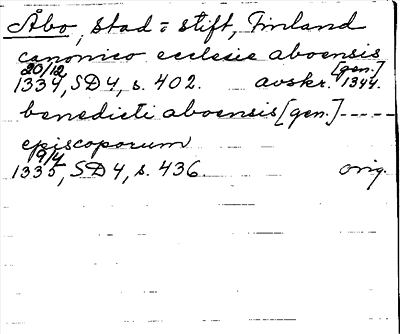 Åbo, stad = stift, Finland
canonico ecclesie aboensis
[gen.]
20/12
1334, SD4, s. 402. avskr. 1344.
benedicti aboensis [gen.] -----
episcoporum
9/4
1335, SD4, s. 436. orig.